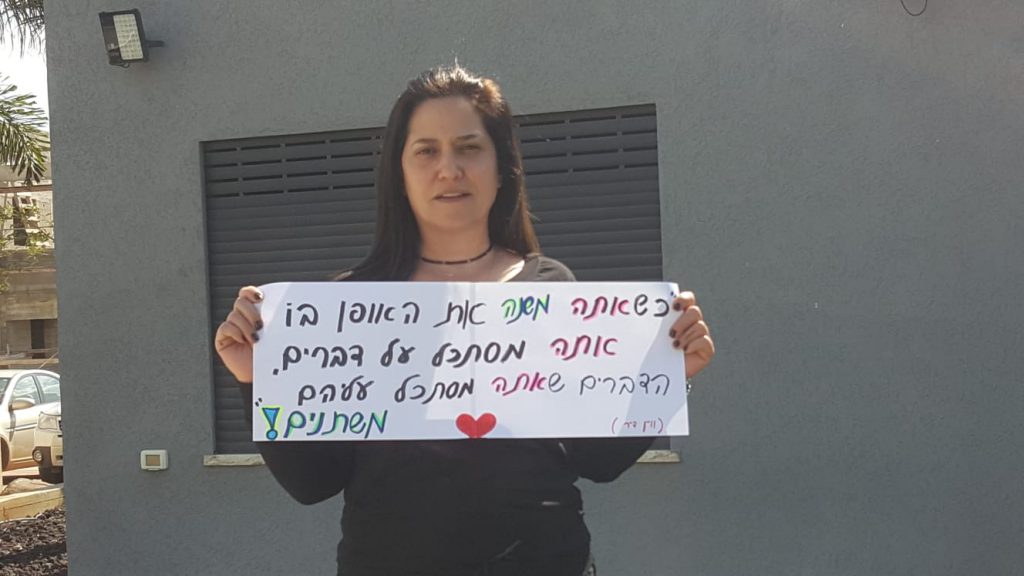 "כשאתה משנה את האופן בו
אתה מסתכל על דברים,
הדברים שאתה מסתכל עליהם
משתנים"!
(ווין דייר)